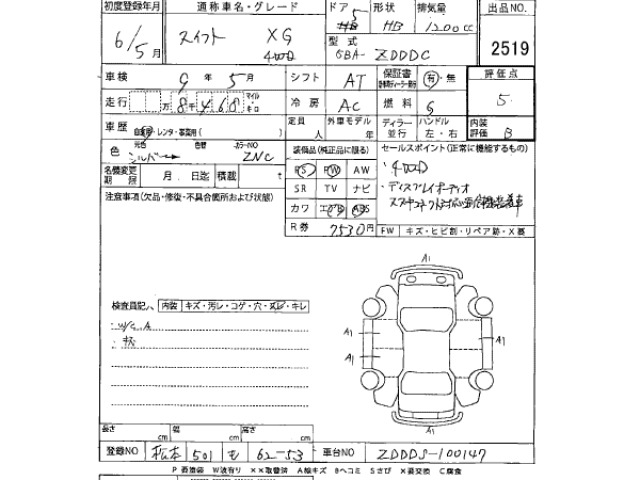 初度登録年月 通称車名・グレード ドア 形状 排気量 出品NO.
6/5月 スイフト XG 4WD 5 HB 1200cc 2519
型式 6BA- ZDDDC
車検 9年5月 シフト AT 保証書 有・無 評価点 5
走行 万8千468 マイル キロ 冷房 AC 燃料 G
車歴 自家用・レンタ・事業用( ) 定員 人 外車モデル 年 ディラー 並行 ハンドル 左・右 内装評価 B
色 元色 シルバー 色替 カラーNO ZNC
装備品(純正品に限る) セールスポイント(正常に機能するもの)
名義変更期限 月 日 積載 t PS PW AW ・4WD
注意事項(欠品・修復・不具合箇所および状態) SR TV ナビ ・ディスプレイオーディオ
カワ エアB ABS
R券 7530円 FW キズ・ヒビ割・リペア跡・X要
A1
検査員記入 内装 キズ・汚レ・コゲ・穴・スレ・キレ
W/C A
A1 A1
A1
長さ cm 幅 cm 高さ cm
登録NO 松本 501 も 62-53 車台NO ZDDDS-100147
P要塗装 W波有り XX取替済 A線キズ Bヘコミ Sさび X要交換 C腐食